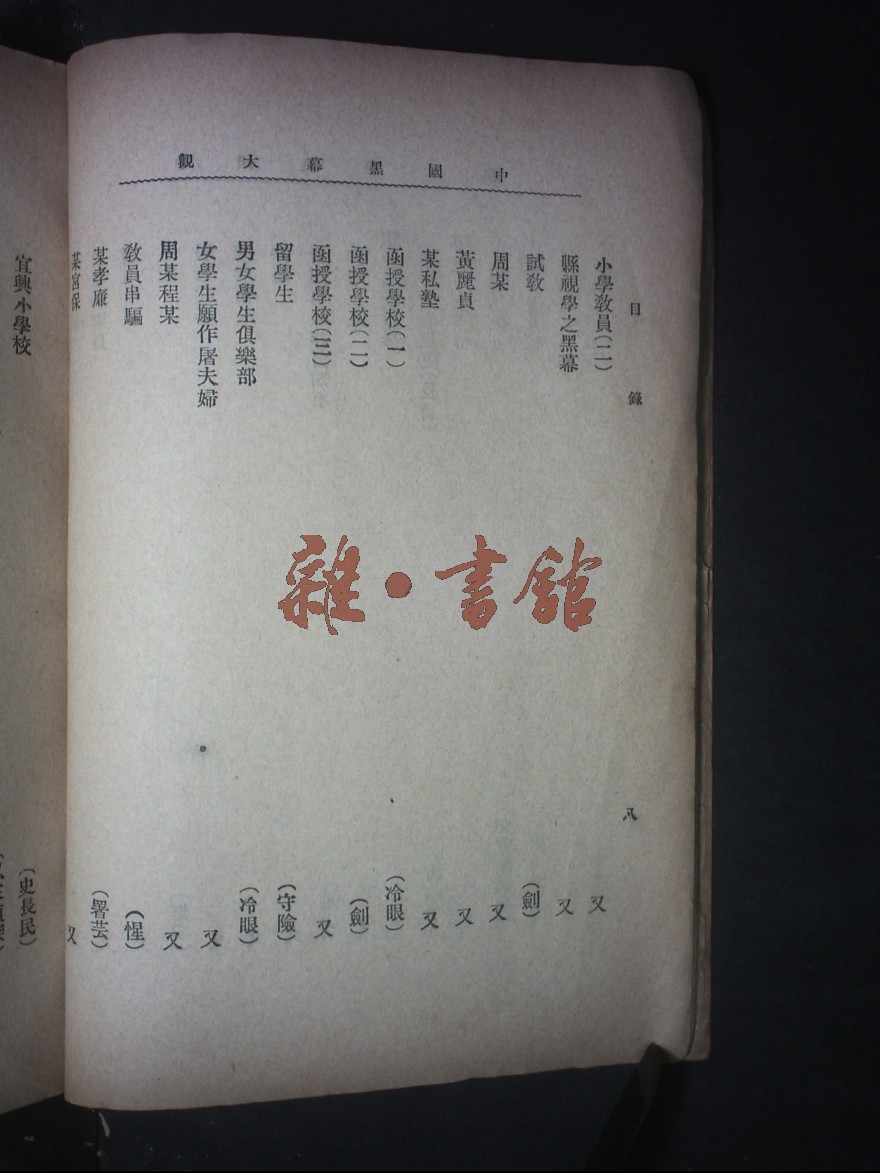 中國黑幕大觀
目錄
八
小學敎員(二) 又
縣視學之黑幕 又
試敎 (劍)
周某 又
黃麗貞 又
某私塾 又
函授學校(一) (冷眼)
函授學校(二) (劍)
函授學校(三) 又
留學生 (守險)
男女學生俱樂部 (冷眼)
女學生願作屠夫婦 又
周某程某 又
敎員串騙 (惺)
某孝廉 (署芸)
某宮保 又
宜興小學校 (史長民)
雜•書館